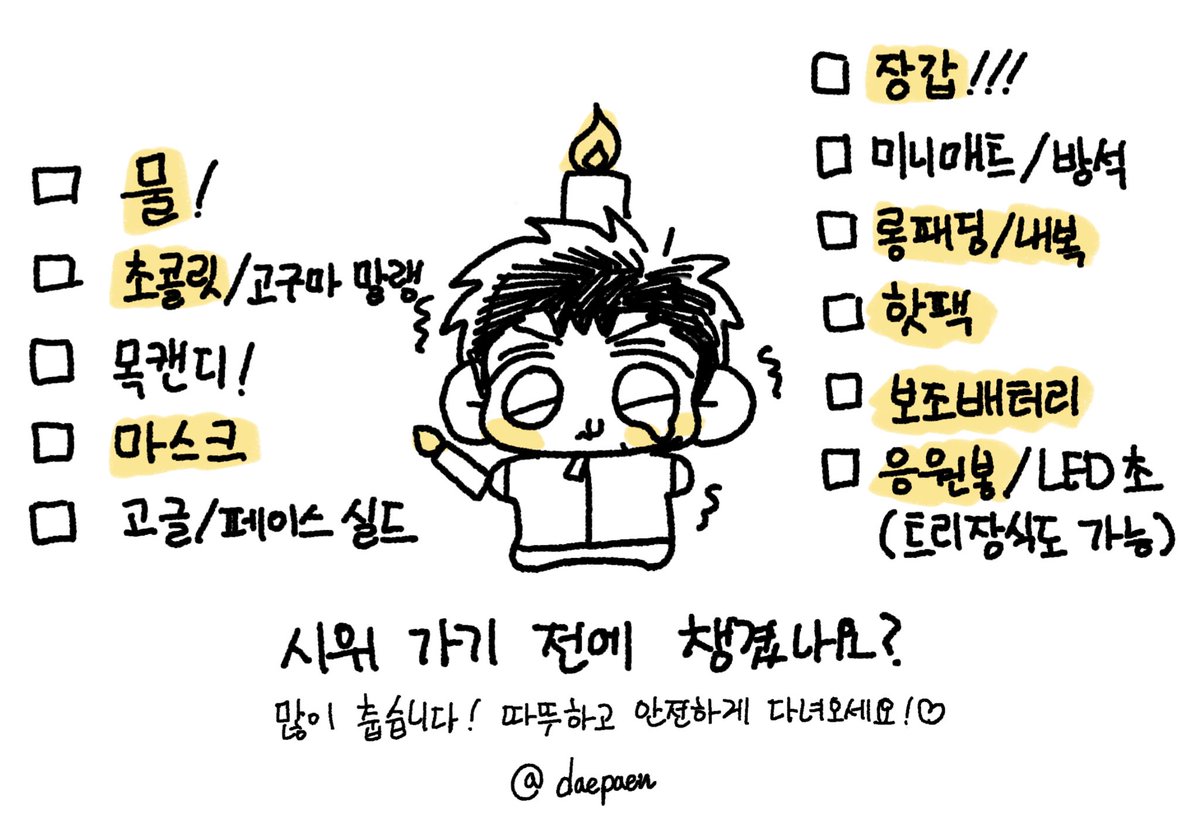 물!
초콜릿/고구마 말랭
목캔디!
마스크
고글/페이스 실드
장갑!!!
미니매트/방석
롱패딩/내복
핫팩
보조배터리
응원봉/LED초
(트리장식도 가능)
시위 가기 전에 챙겼나요?
많이 춥습니다! 따뚜하고 안전하게 다녀오세요!♡
@daepaen